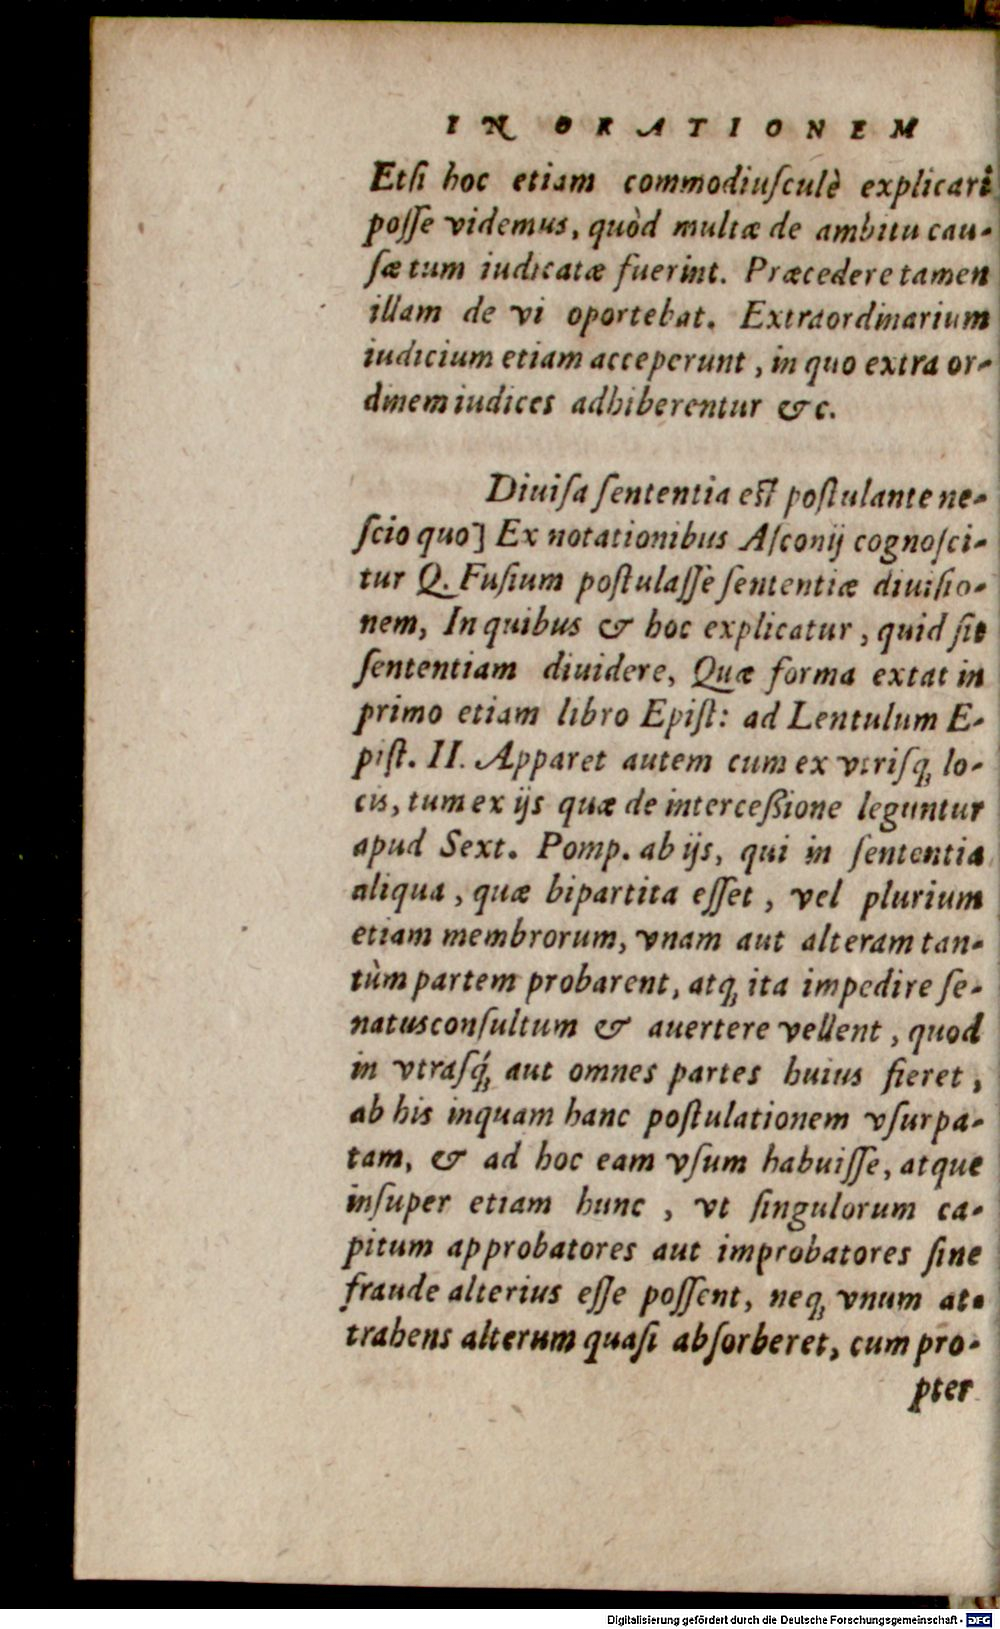 IN ORATIONEM
Etſi hoc etiam commodiuſculè explicari
poſſe videmus, quòd multæ de ambitu cau-
ſæ tum iudicatæ fuerint. Præcedere tamen
illam de vi oportebat. Extraordinarium
iudicium etiam acceperunt, in quo extra or-
dinem iudices adhiberentur &c.
Diuiſa ſententia eſt poſtulante ne-
ſcio quo] Ex notationibus Aſconij cognoſci-
tur Q. Fuſium poſtulaſſe ſententiæ diuiſio-
nem, In quibus & hoc explicatur, quid ſit
ſententiam diuidere, Quæ forma extat in
primo etiam libro Epiſt: ad Lentulum E-
piſt. II. Apparet autem cum ex vtriſq; lo-
cis, tum ex ijs quæ de interceßione leguntur
apud Sext. Pomp. ab ijs, qui in ſententia
aliqua, quæ bipartita eſſet, vel plurium
etiam membrorum, vnam aut alteram tan-
tùm partem probarent, atq; ita impedire ſe-
natusconſultum & auertere vellent, quod
in vtraſq́; aut omnes partes huius fieret,
ab his inquam hanc poſtulationem vſurpa-
tam, & ad hoc eam vſum habuiſſe, atque
inſuper etiam hunc, vt ſingulorum ca-
pitum approbatores aut improbatores ſine
fraude alterius eſſe poſſent, neq; vnum at-
trahens alterum quaſi abſorberet, cum pro-
pter
Digitalisierung gefördert durch die Deutsche Forschungsgemeinschaft - DFG